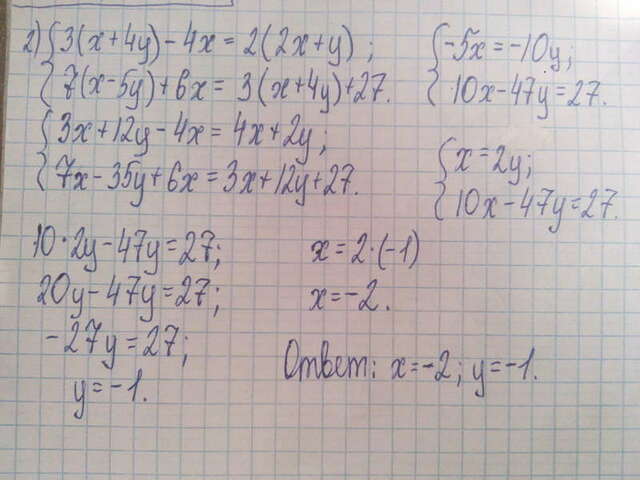 2) { 3(x+4y)-4x=2(2x+y);
{ 7(x-5y)+6x=3(x+4y)+27.
{ 3x+12y-4x=4x+2y;
{ 7x-35y+6x=3x+12y+27.
{ -5x=-10y;
{ 10x-47y=27.
{ x=2y;
{ 10x-47y=27.
10·2y-47y=27;
20y-47y=27;
-27y=27;
y=-1.
x=2·(-1)
x=-2.
Ответ: x=-2; y=-1.